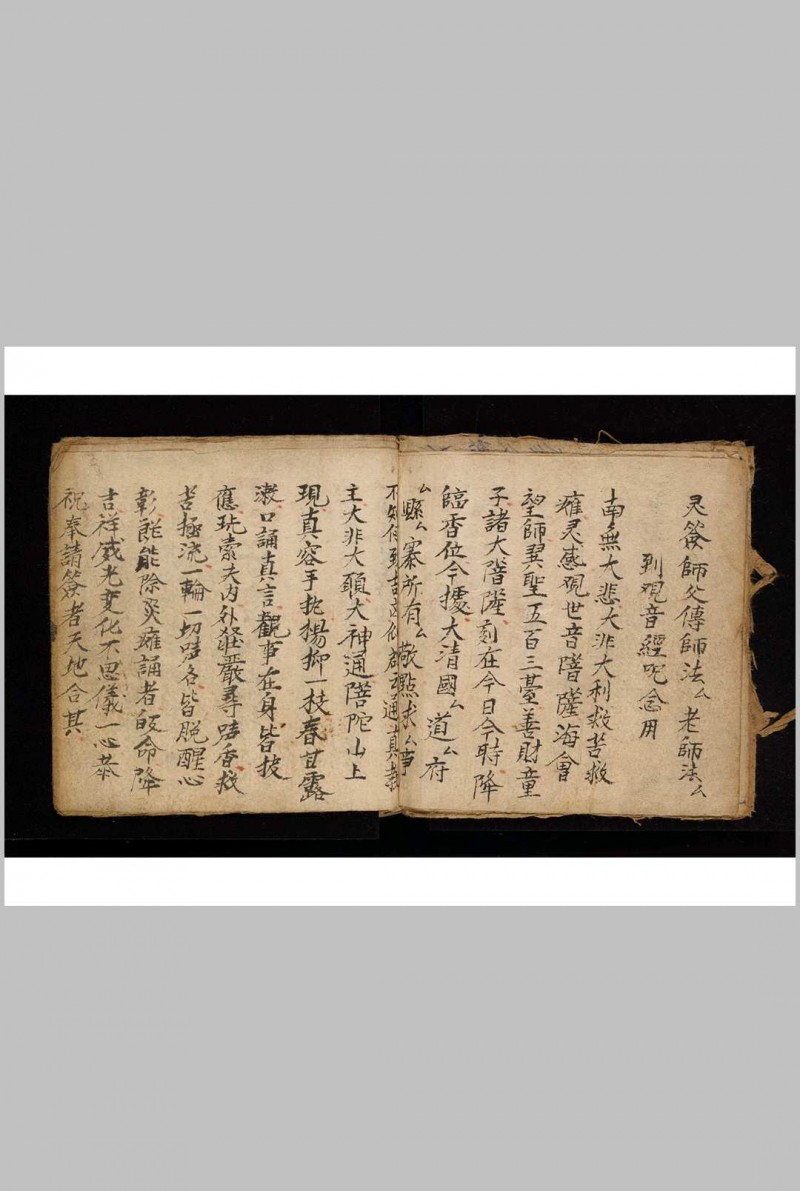 灵簽師父傳師法厶老師法厶
到观音經咒念用
南無大悲大非大利救苦救
难灵感观世音菩薩海會
望師羿聖五百三臺善財童
子諸大菩薩刻在今日今時降
臨香位今據大清國厶道厶府
厶縣厶寨所有厶敬點求厶事
不知何到吉凶通真表
主大非大頭大神通普陀山上
現真容手扡楊抑一枝春甘露
漱口誦真言觀事在身皆披
應玩索夫内外莊嚴尋声香救
苦極流一輪一切声名皆脱醒心
彰能能除災难誦者皈命降
吉祥威光变化不思儀一心恭
祝奉請簽者天地合其